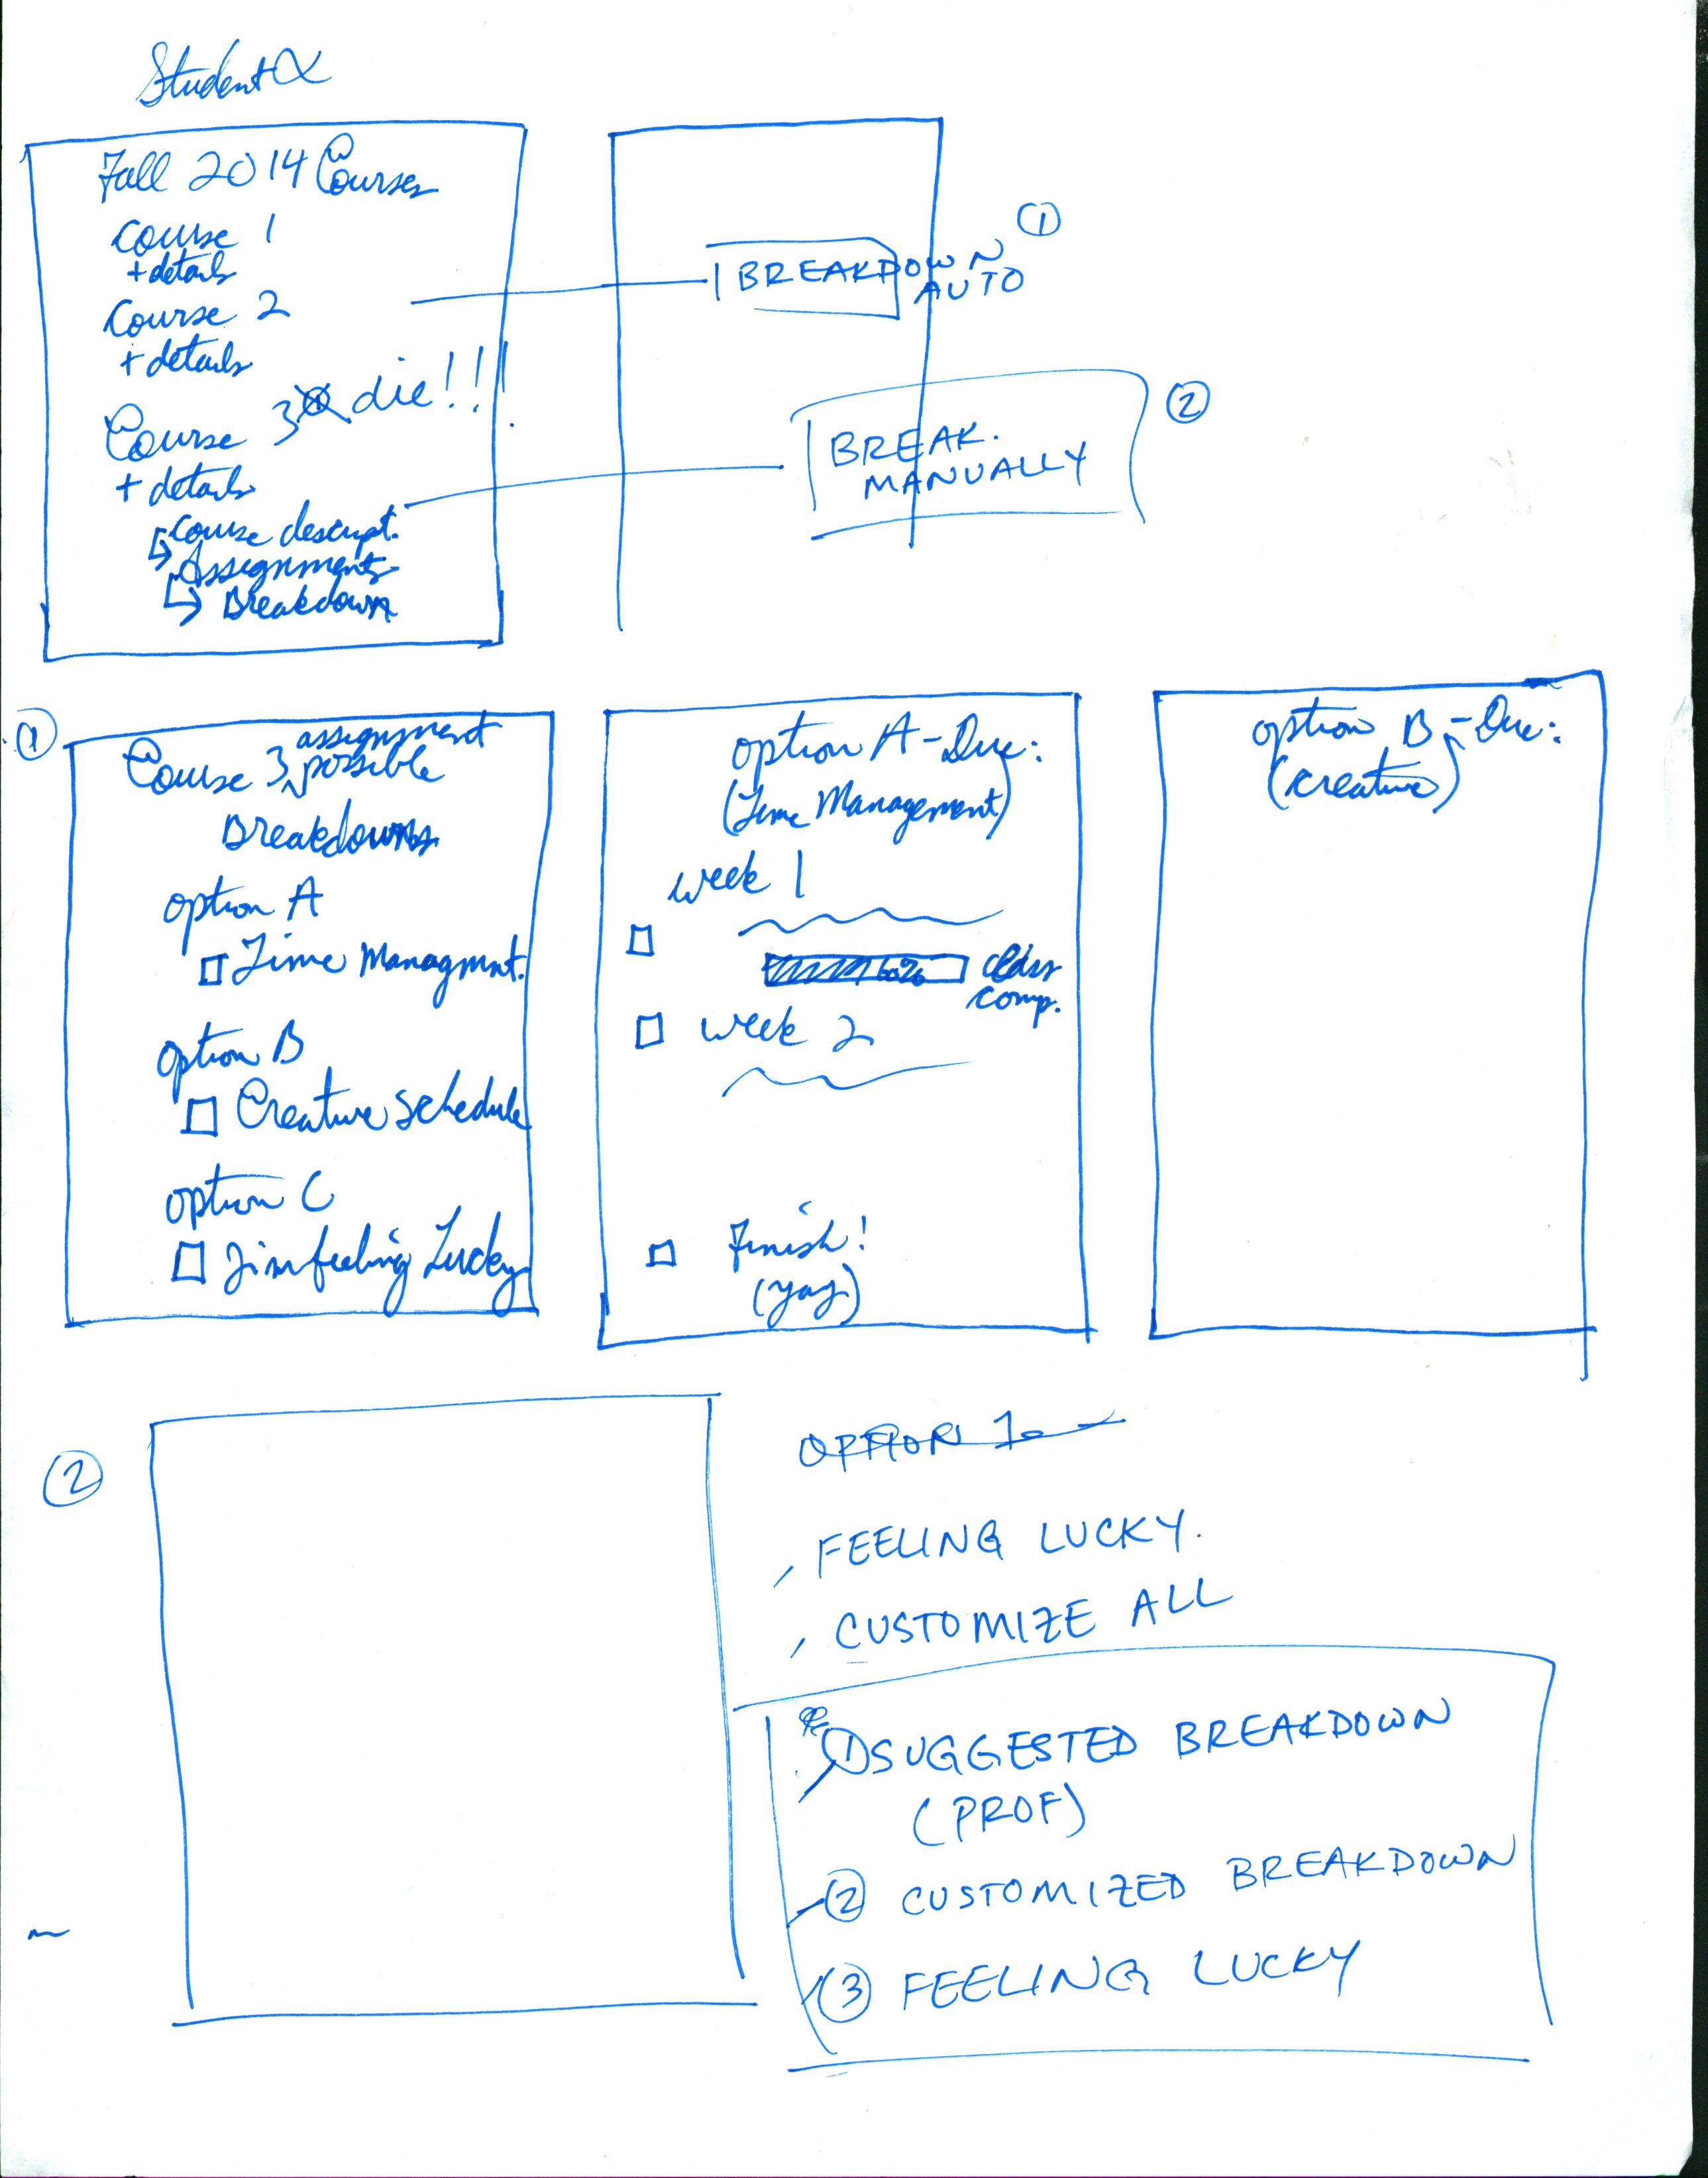 Student α
Fall 2014 Courses
course 1
+ details
Course 2
+ details
Course 3 die!!!
+ details
↳ course descript.
Assignments
↳ Breakdown
① 
BREAKDOWN
AUTO
②
BREAK.
MANUALLY
①
assignment
Course 3 possible
Breakdowns
option A
Time Managmnt.
option B
Creative schedule
option C
I'm feeling Lucky
option A - Due:
(Time Management)
week 1
60%
class
comp.
week 2
Finish!
(yay)
option B - Due:
(creative)
②
OPTION 1.
FEELING LUCKY.
CUSTOMIZE ALL
① SUGGESTED BREAKDOWN
(PROF)
② CUSTOMIZED BREAKDOWN
③ FEELING LUCKY